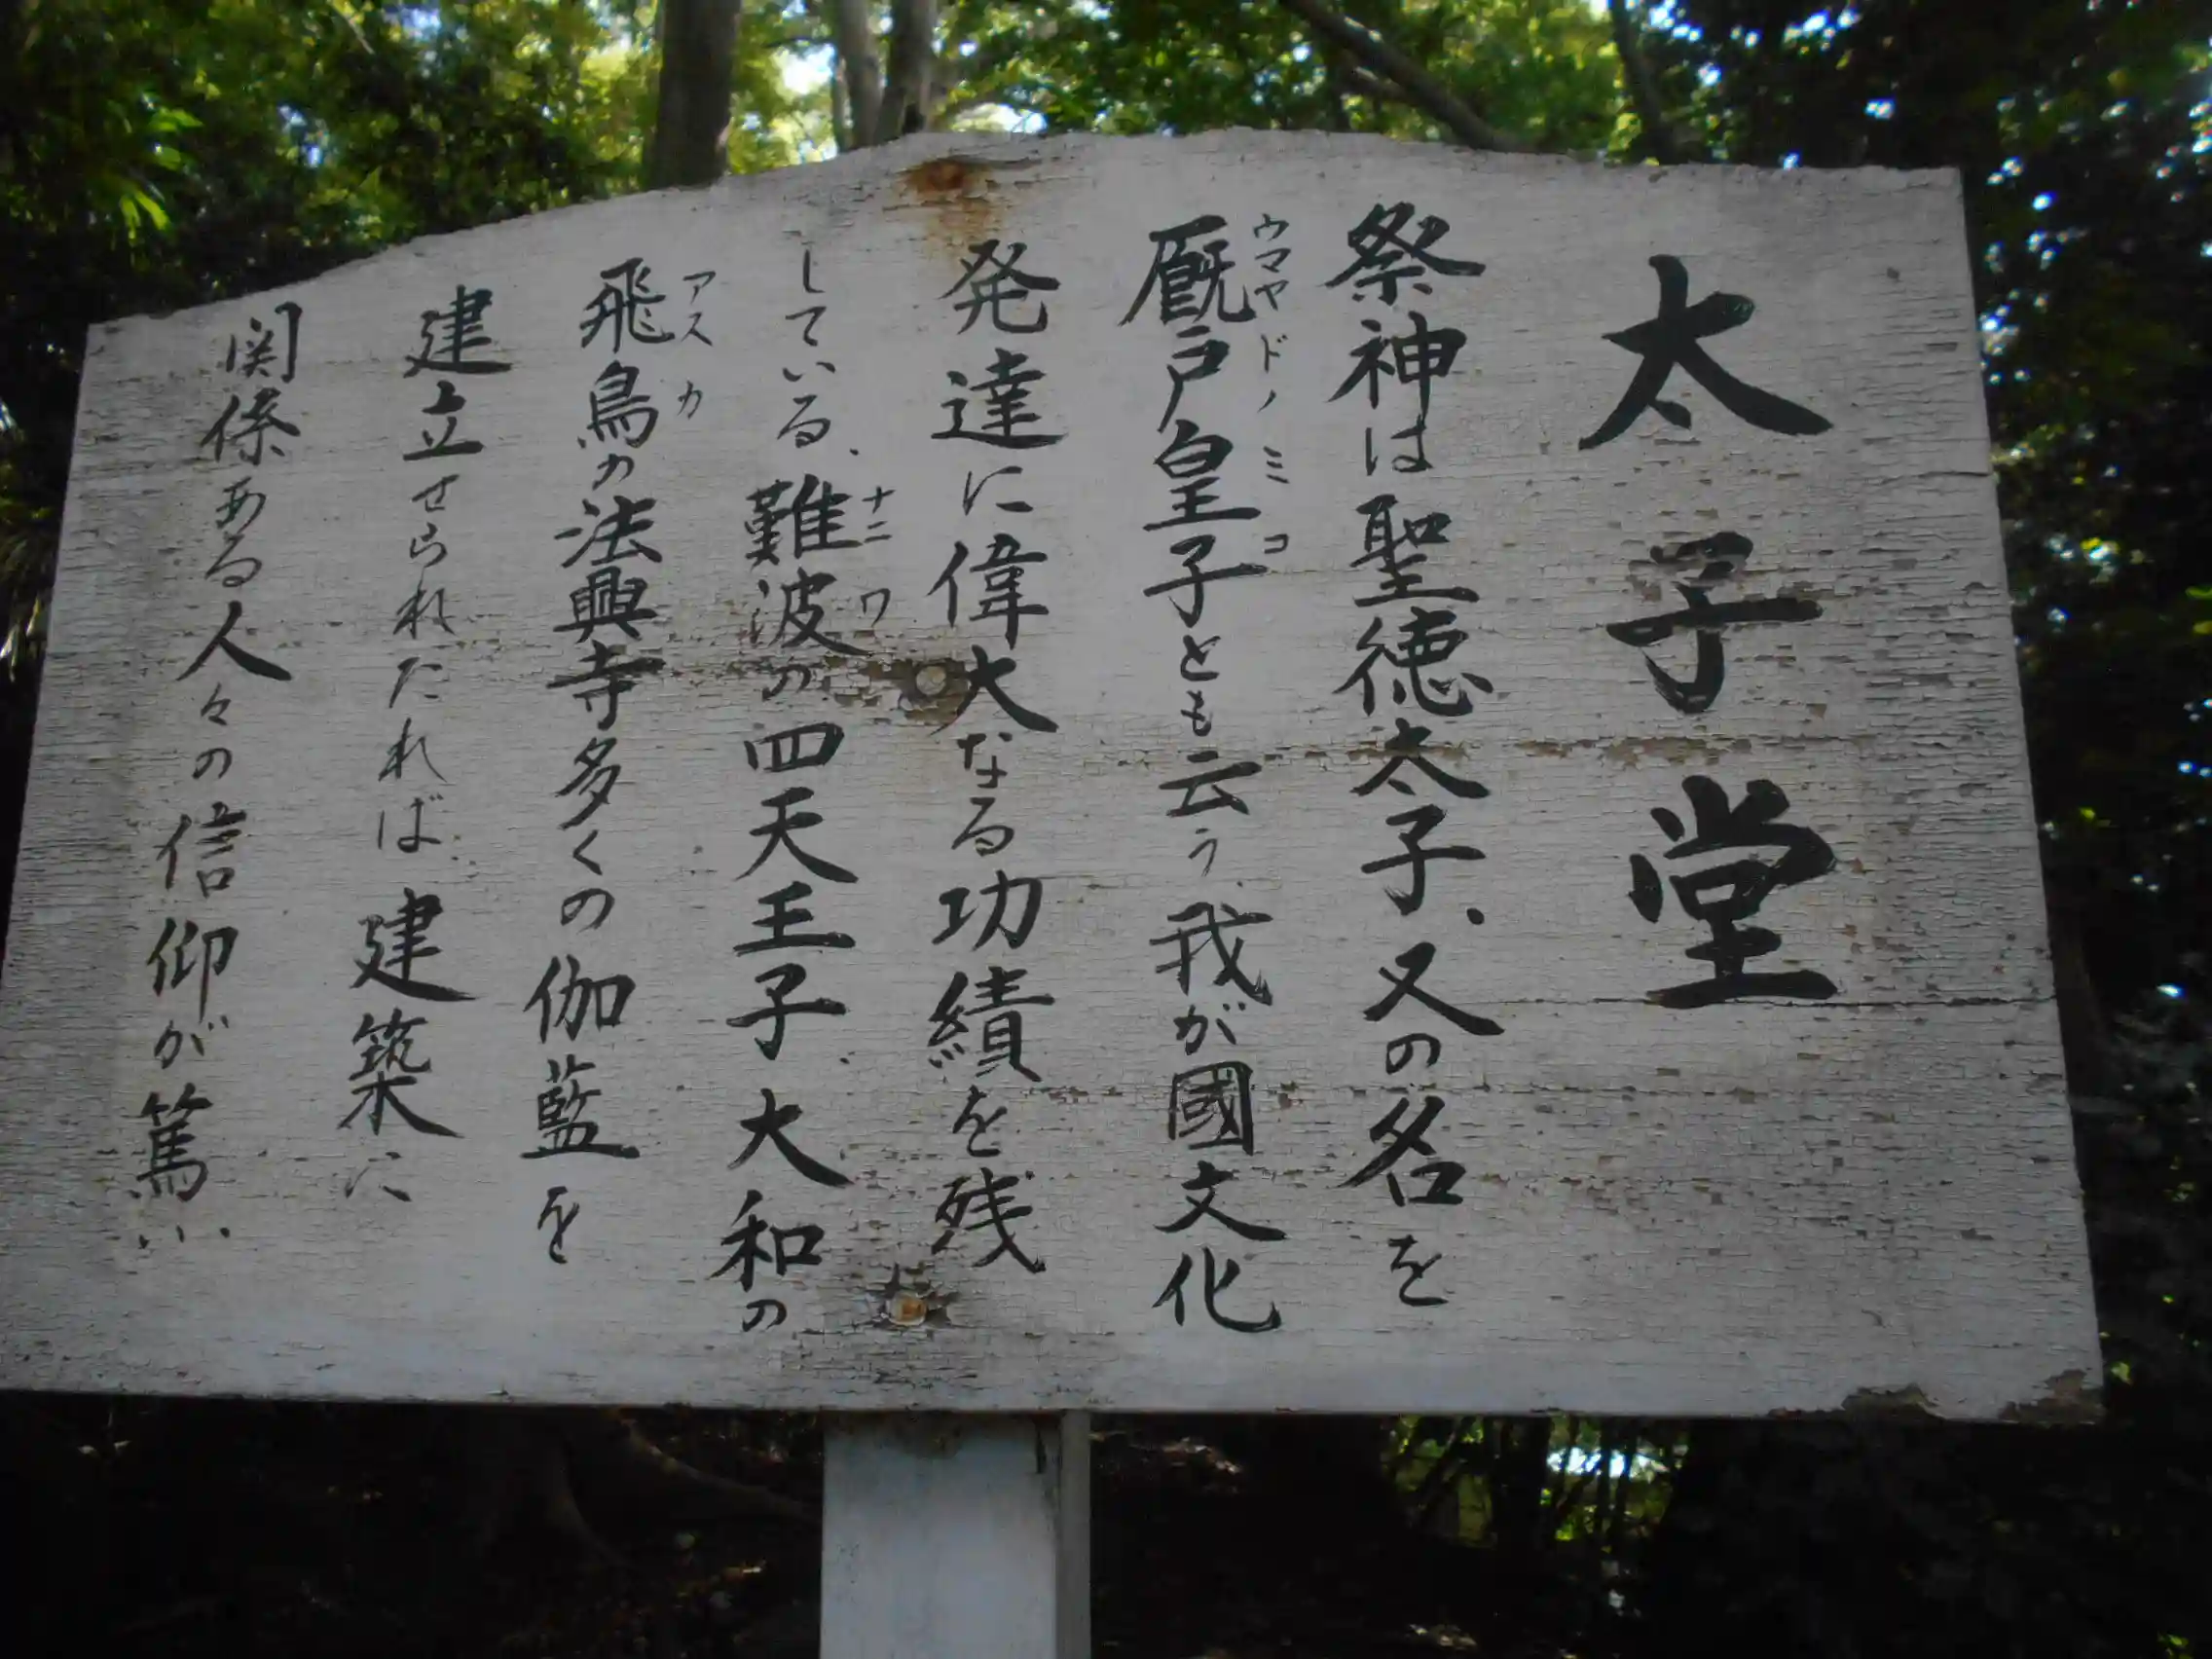 太子堂
祭神は聖徳太子、又の名を
厩戸皇子とも云う、我が國文化
ウマヤドノミコ
発達に偉大なる功績を残
している、難波の四天王子、大和の
ナニワ
飛鳥の法興寺多くの伽藍を
アスカ
建立せられたれば、建築に
関係ある人々の信仰が篤い、